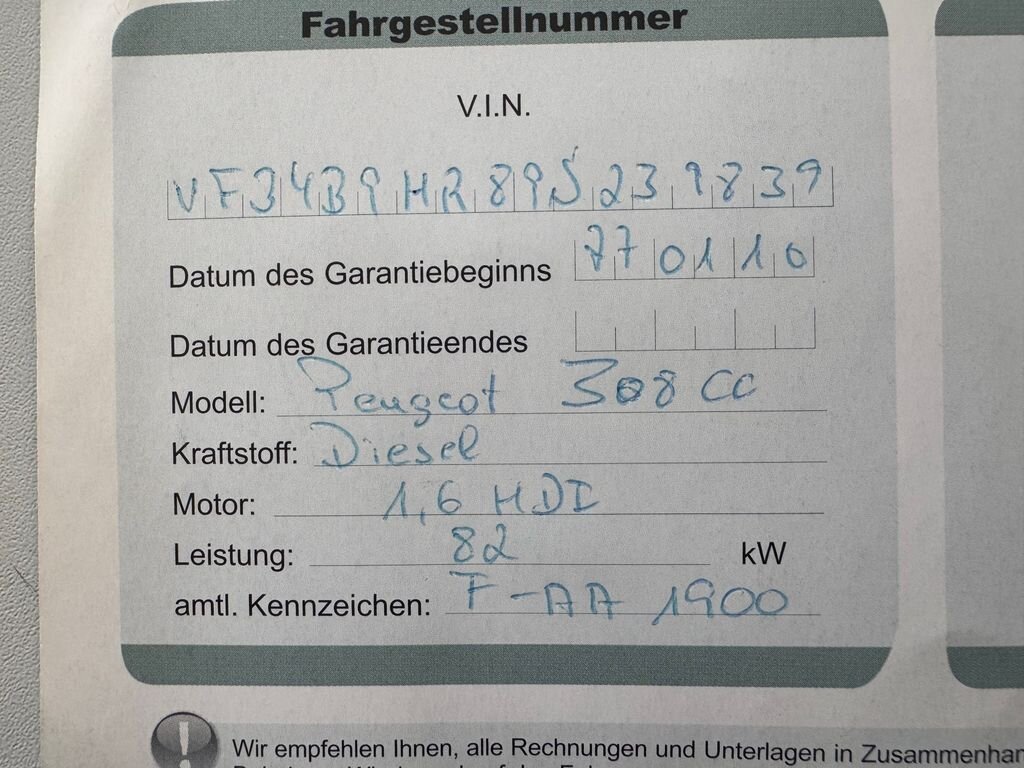 Fahrgestellnummer
V.I.N.
VF34B9HR89S239839
Datum des Garantiebeginns 770110
Datum des Garantieendes
Modell: Peugeot 308 CC
Kraftstoff: Diesel
Motor: 1,6 HDI
Leistung: 82 kW
amtl. Kennzeichen: F-AA 1900
Wir empfehlen Ihnen, alle Rechnungen und Unterlagen in Zusammenhan